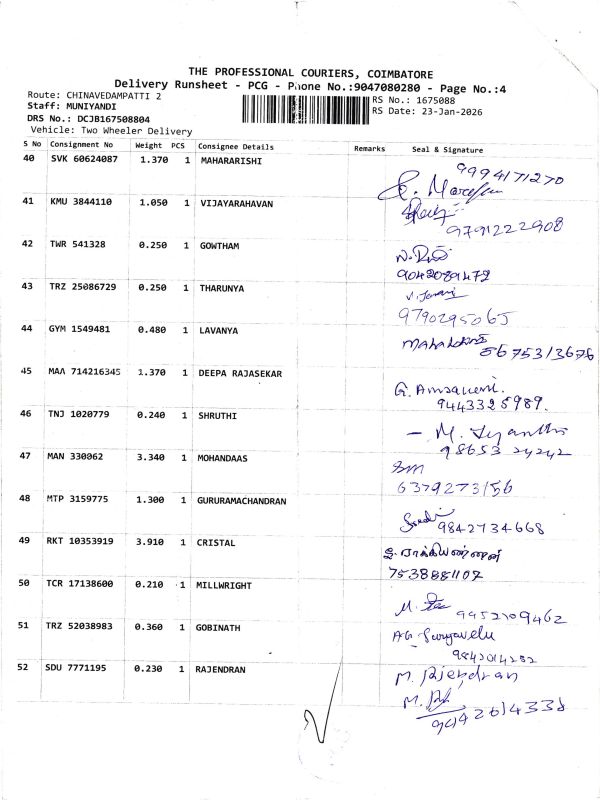 THE PROFESSIONAL COURIERS, COIMBATORE
Delivery Runsheet - PCG - Phone No.:9047080280 - Page No.:4
Route: CHINAVEDAMPATTI 2
Staff: MUNIYANDI
DRS No.: DCJB167508804
Vehicle: Two Wheeler Delivery
RS No.: 1675088
RS Date: 23-Jan-2026
S No Consignment No Weight PCS Consignee Details Remarks Seal & Signature
40 SVK 60624087 1.370 1 MAHARARISHI
9994171270
41 KMU 3844110 1.050 1 VIJAYARAHAVAN
9791222908
42 TWR 541328 0.250 1 GOWTHAM
9042089472
43 TRZ 25086729 0.250 1 THARUNYA
9790295065
44 GYM 1549481 0.480 1 LAVANYA
8675313676
45 MAA 714216345 1.370 1 DEEPA RAJASEKAR
G.
9443325989.
46 TNJ 1020779 0.240 1 SHRUTHI
- M. Jyanthi
98653 24242
47 MAN 330062 3.340 1 MOHANDAAS
6379273156
48 MTP 3159775 1.300 1 GURURAMACHANDRAN
9842734668
49 RKT 10353919 3.910 1 CRISTAL
7538881107
50 TCR 17138600 0.210 1 MILLWRIGHT
M.
9452109462
51 TRZ 52038983 0.360 1 GOBINATH
AG. Suryavelu
9843014202
52 SDU 7771195 0.230 1 RAJENDRAN
M. Rjendran
M.
9442614338